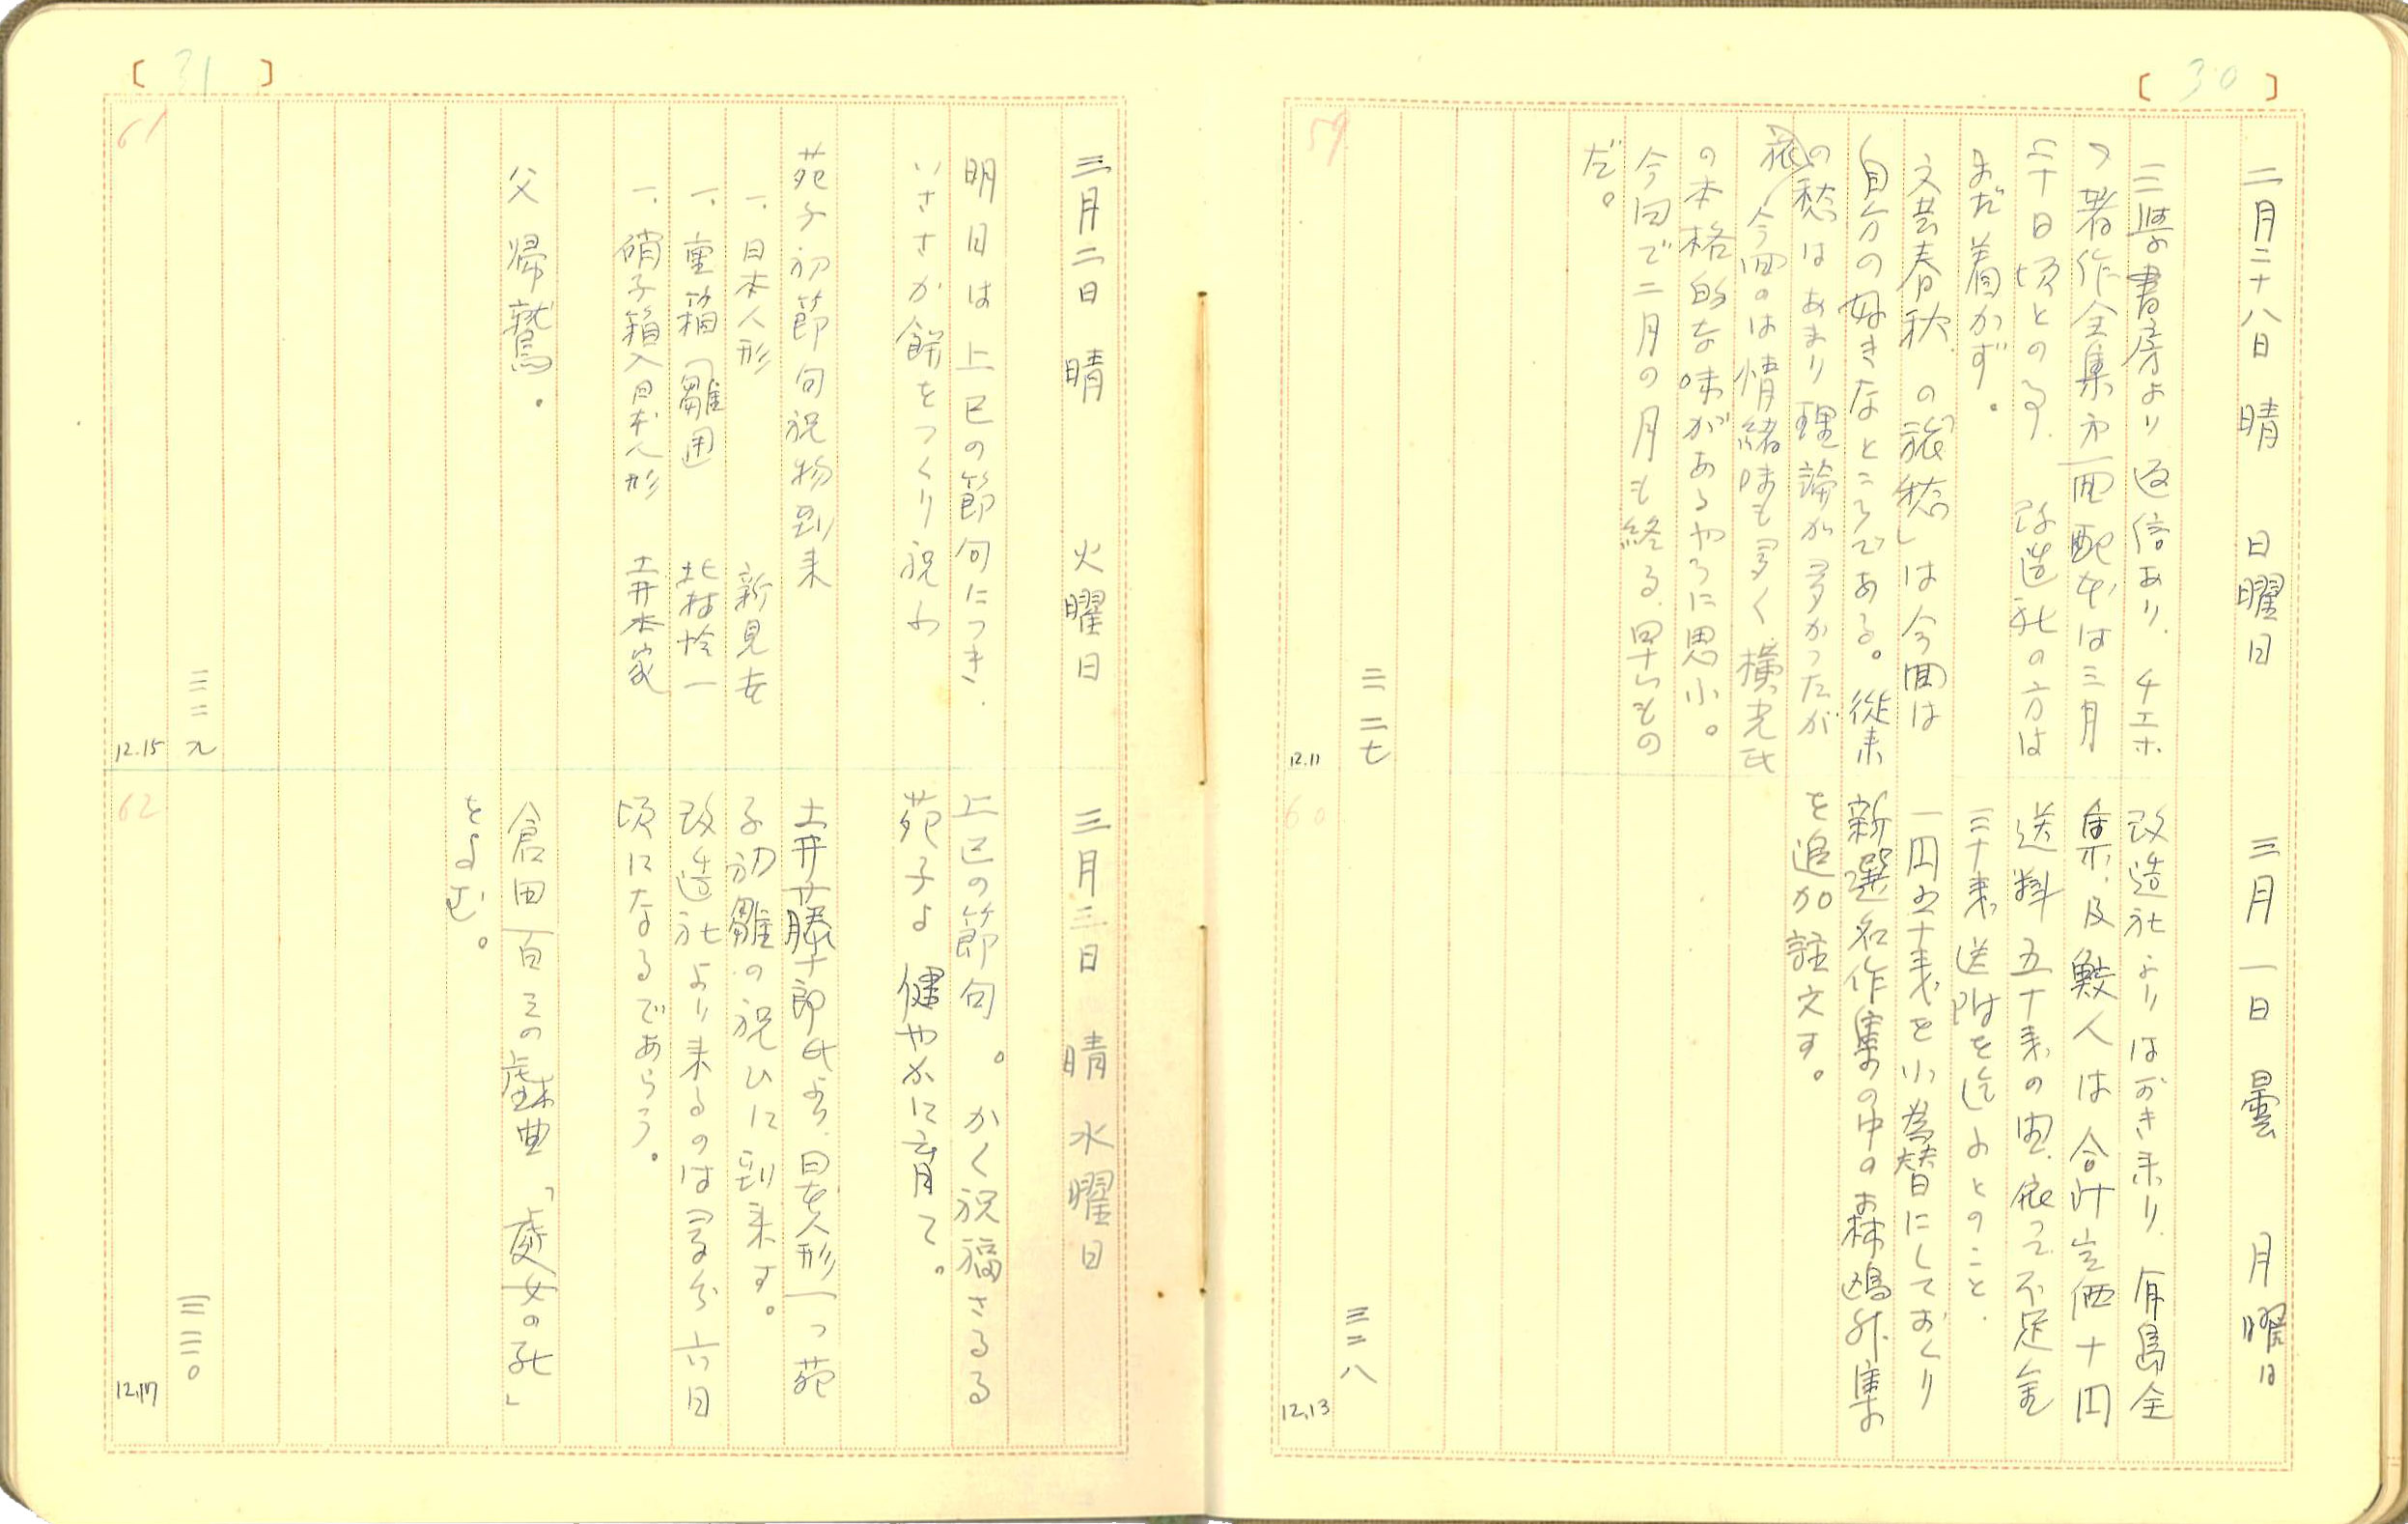 〔30〕
二月二十八日 晴 日曜日
三學書房より返信あり. チエホ
フ著作全集第一回配本は三月
二十日頃との事. 改造社の方は
まだ着かず。
文芸春秋の「旅愁」は今回は
自分の好きなところである。從来
の旅愁はあまり理論が多かつたが
今回のは情緒味も多く横光氏
の本格的な味があるやうに思ふ。
今日で二月の月も終る. 早いもの
だ。
三二七
59
12.11
三月一日 曇 月曜日
改造社よりはがき来り. 有島全
集及鮫人は合計定価十円
送料五十銭の由. 依つて不足金
三十銭送附を乞ふとのこと.
一円五十銭を小為替にしておくり
新選名作集の中の森鴎外集
を追加註文す。
三二八
60
12.13
〔31〕
三月二日 晴 火曜日
明日は上巳の節句につき.
いささか餅をつくり祝ふ
苑子初節句祝物到来
一. 日本人形 新見
一. 重箱(雛囲 北村怜一
一. 硝子箱入日本人形 土井本家
父帰鷲.
三二九
61
12.15
三月三日 晴 水曜日
上巳の節句。かく祝福さるる
苑子よ健やかに育て。
土井藤十郎氏より. 日本人形一つ苑
子初雛の祝ひに到来す。
改造社より来るのは多分六日
頃になるであらう。
倉田百三の戯曲「處女の死」
をよむ。
三三〇
62
12.17